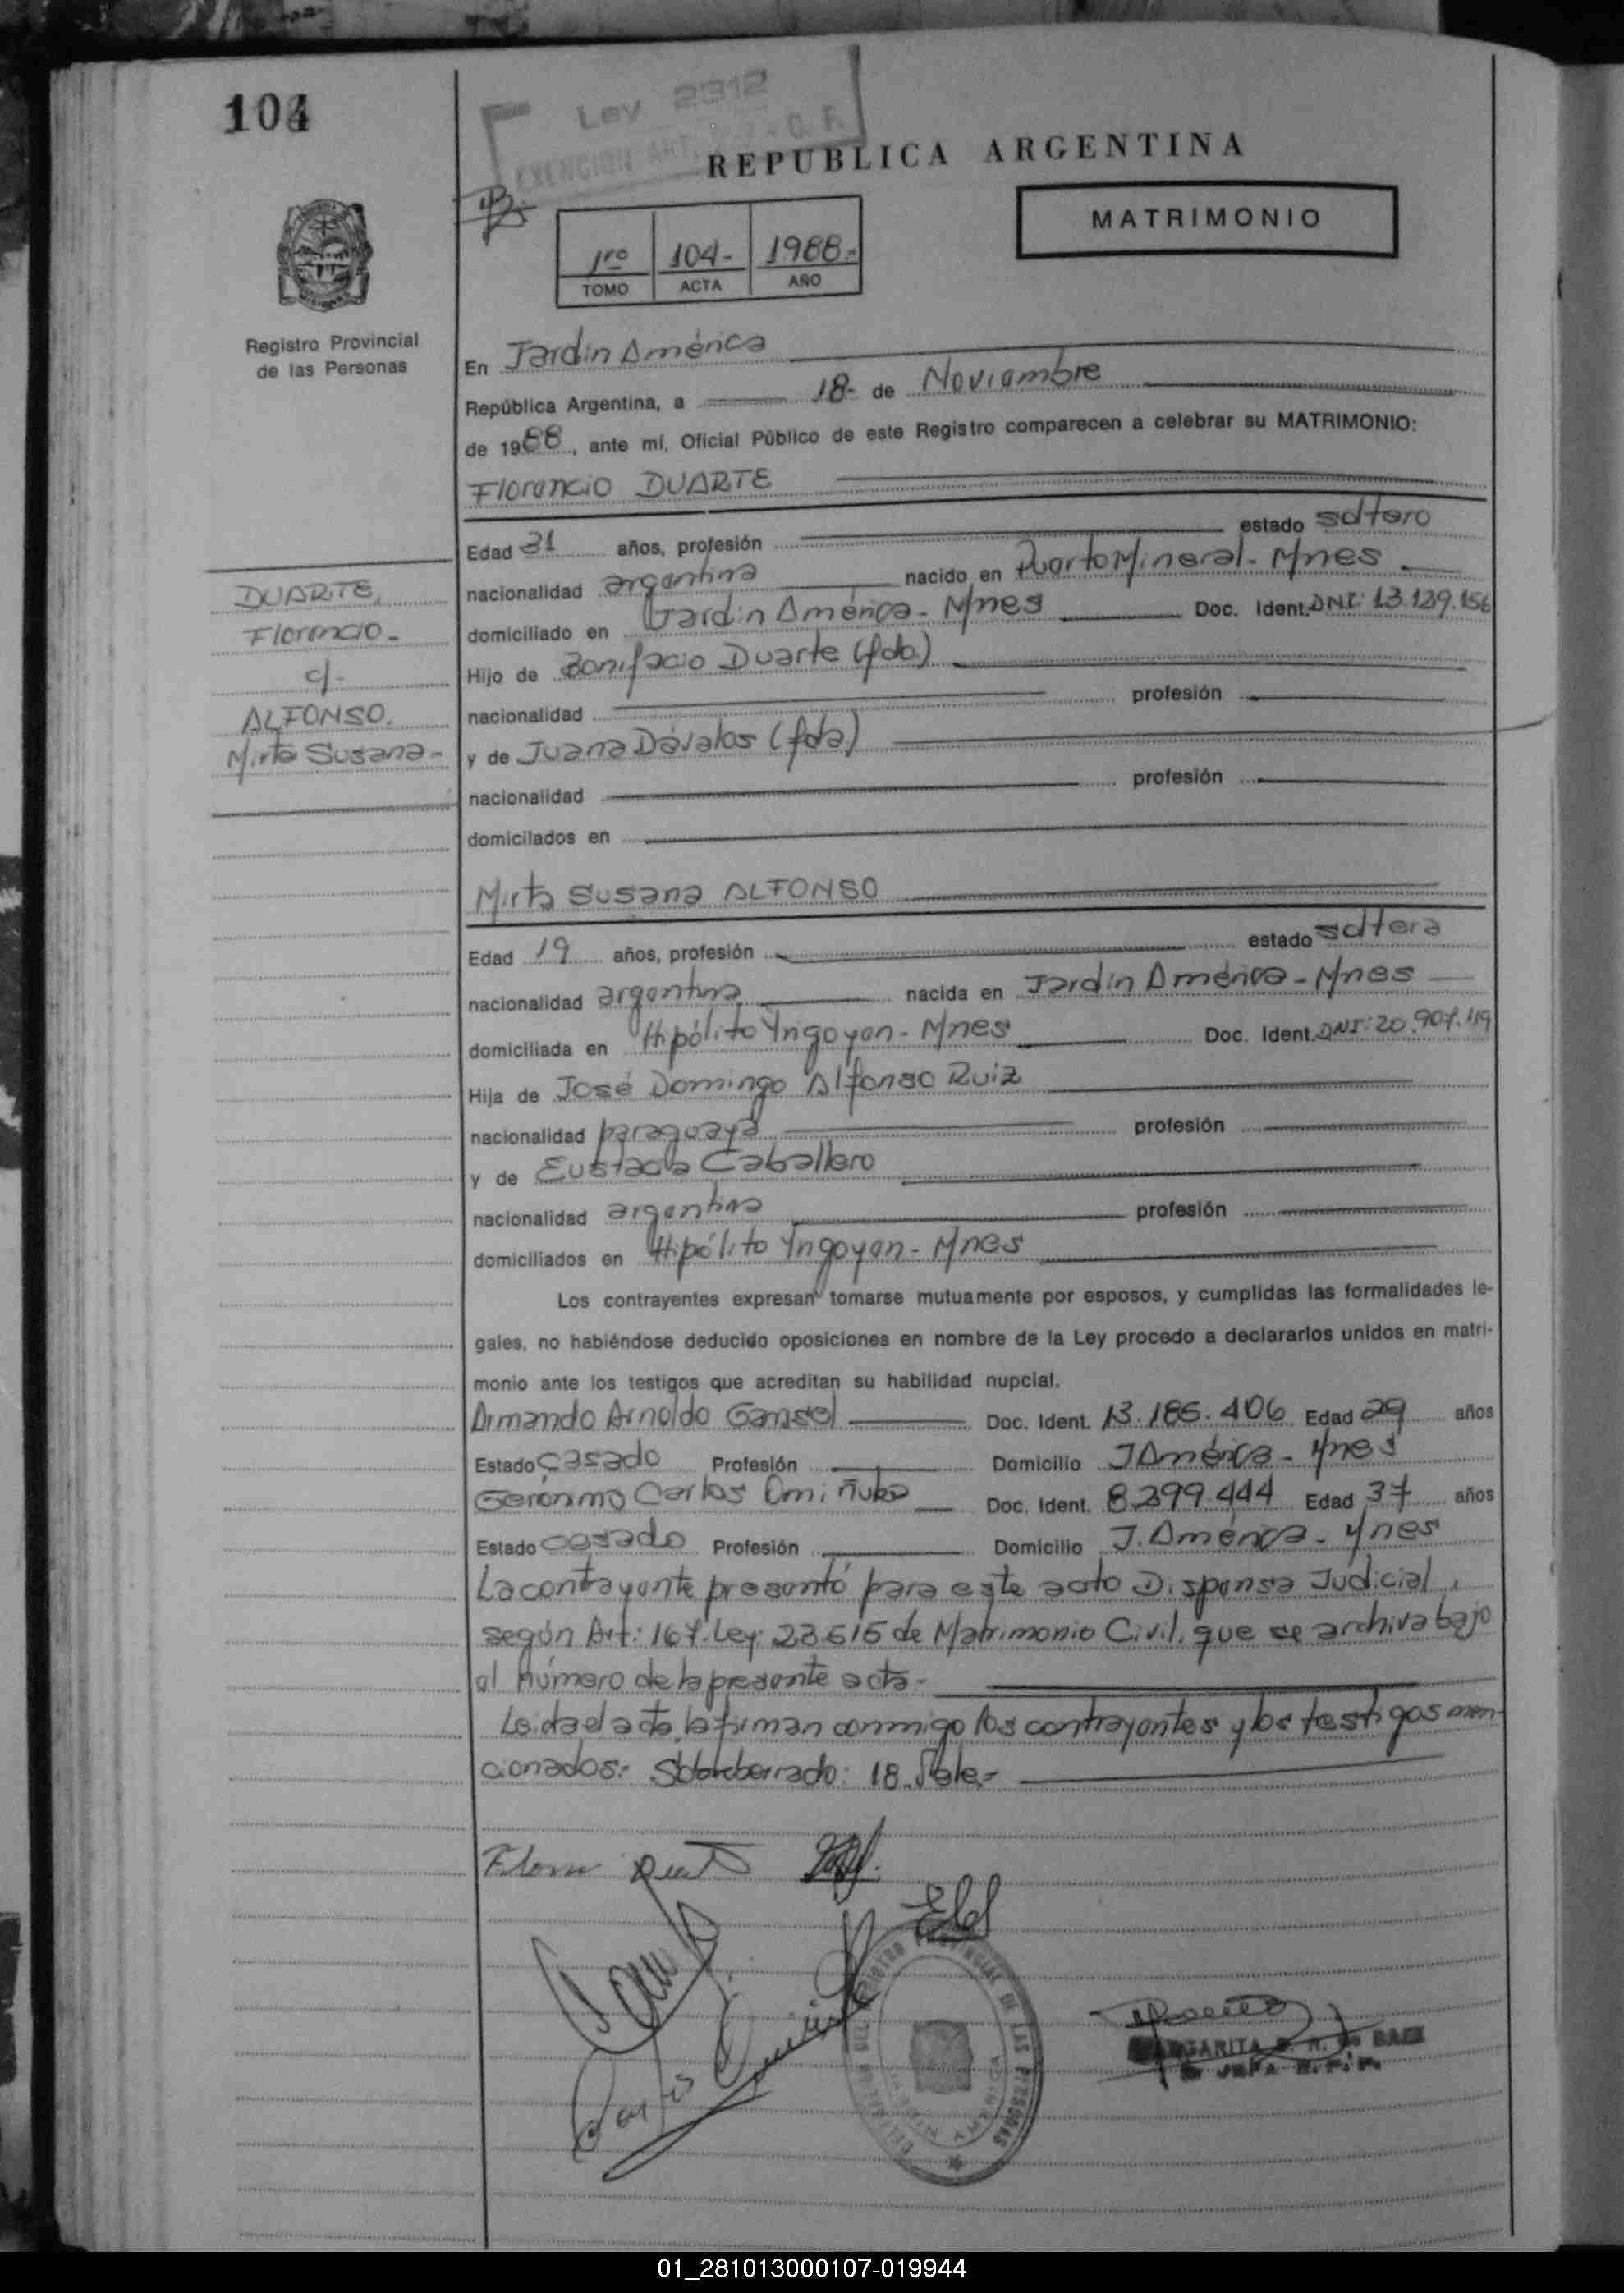 104
Ley 2312
EXENCION ART. 
REPUBLICA ARGENTINA
MATRIMONIO
1ro 104- 1988-
TOMO ACTA AÑO
Registro Provincial
de las Personas
En Jardín América
República Argentina, a 18- de Noviembre
de 1988, ante mí, Oficial Público de este Registro comparecen a celebrar su MATRIMONIO:
Florencio DUARTE
Edad 31 años, profesión estado soltero
nacionalidad argentina nacido en Puerto Mineral- Mnes
domiciliado en Jardín América- Mnes Doc. Ident. DNI: 13.139.156
Hijo de Bonifacio Duarte (fdo)
nacionalidad profesión
y de Juana Dávalos (fda)
nacionalidad profesión
domicilados en
DUARTE,
Florencio-
c/-
ALFONSO.
Mirta Susana-
Mirta Susana ALFONSO
Edad 19 años, profesión estado soltera
nacionalidad argentina nacida en Jardín América- Mnes
domiciliada en Hipólito Yrigoyen- Mnes Doc. Ident. DNI: 20.907.119
Hija de José Domingo Alfonso Ruiz
nacionalidad paraguaya profesión
y de Eustacia Caballero
nacionalidad argentina profesión
domiciliados en Hipólito Yrigoyen- Mnes
Los contrayentes expresan tomarse mutuamente por esposos, y cumplidas las formalidades le-
gales, no habiéndose deducido oposiciones en nombre de la Ley procedo a declararlos unidos en matri-
monio ante los testigos que acreditan su habilidad nupcial.
Armando Arnoldo Gansel Doc. Ident. 13.186.406 Edad 29 años
Estado casado Profesión Domicilio J América- Mnes
Gerónimo Carlos Doc. Ident. 8.299.444 Edad 37 años
Estado casado Profesión Domicilio J. América- Mnes
La contrayente presentó para este acto Dispensa Judicial,
según Art: 167. Ley: 23.515 de Matrimonio Civil, que se archiva bajo
el número de la presente acta-
Leída el acta la firman conmigo los contrayentes y los testigos men-
cionados.- Sobreborrado: 18. Vale.-
REGISTRO PROVINCIAL DE LAS PERSONAS
MARGARITA BAEZ
JEFA R.P.P.
01_281013000107-019944